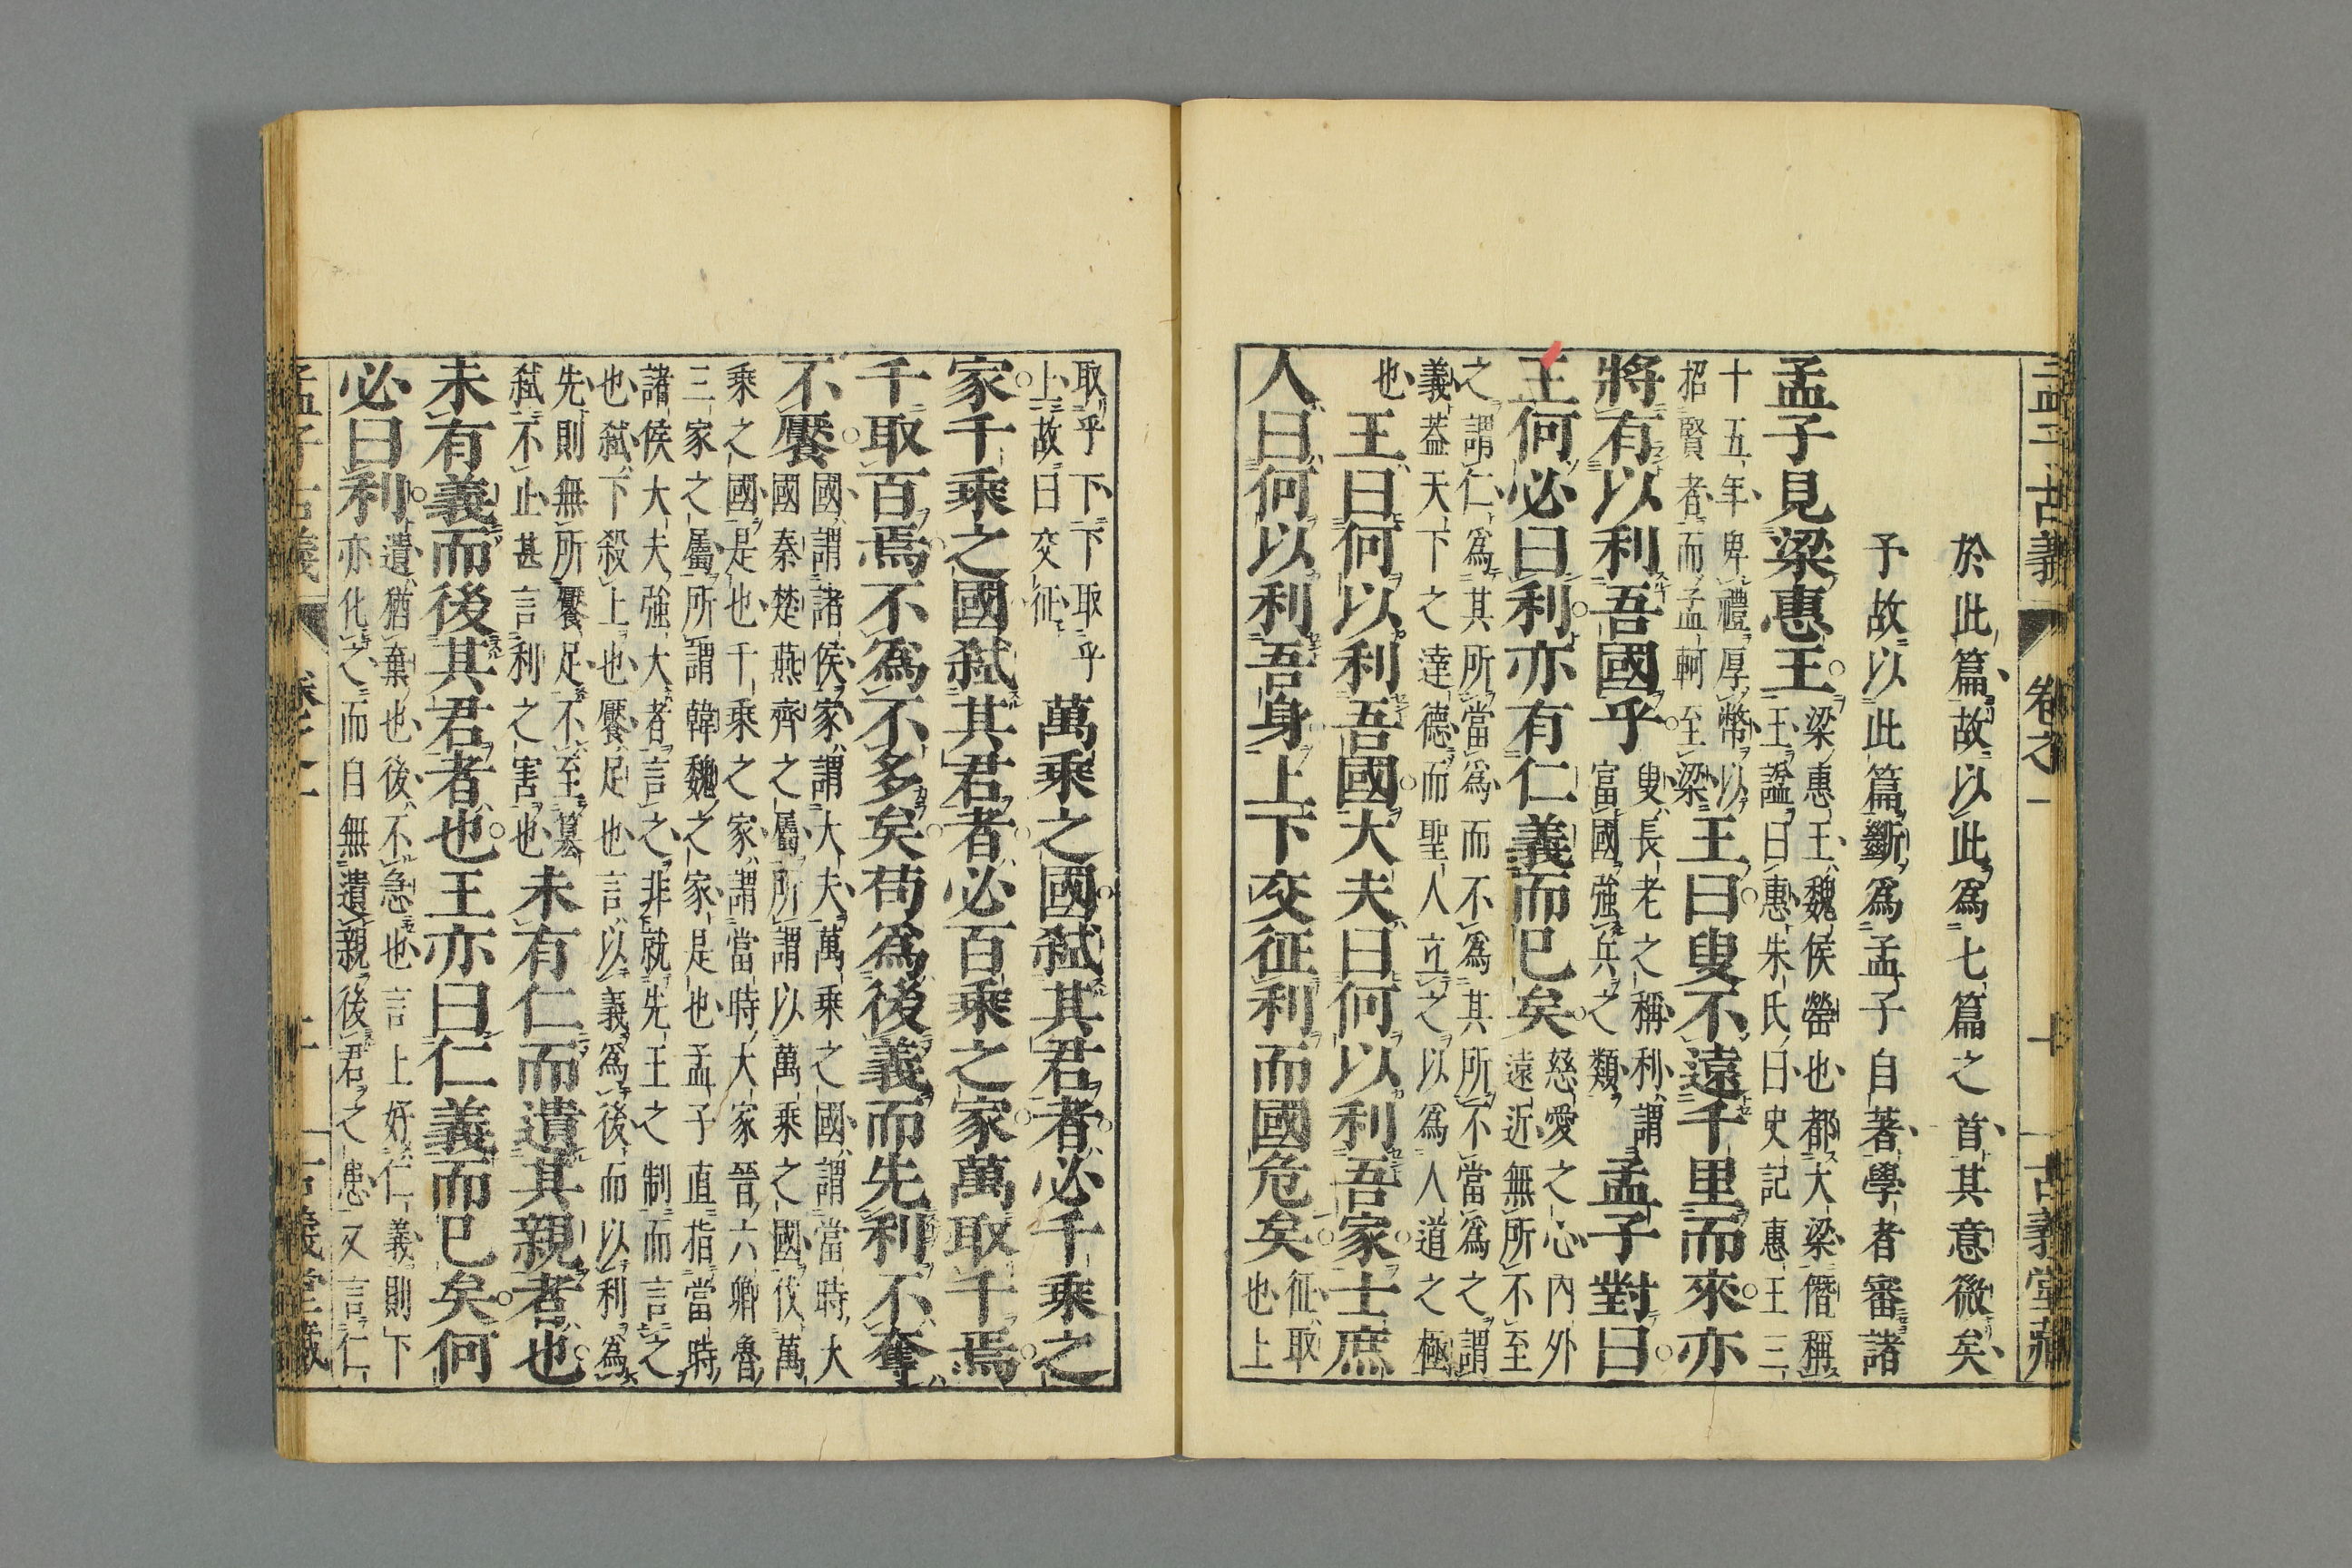 孟子古義 卷之一 古義堂藏
於此篇故以此為七篇之首其意微矣
予故以此篇斷為孟子自著學者審諸
孟子見梁惠王
梁惠王魏侯罃也都大梁僭稱
王諡曰惠朱氏曰史記惠王三
十五年卑禮厚幣以
招賢者而孟軻至梁
王曰叟不遠千里而來亦
將有以利吾國乎
叟長老之稱利謂
富國強兵之類
孟子對曰
王何必曰利亦有仁義而已矣
慈愛之心內外
遠近無所不至
之謂仁為其所當為而不為其所不當為之謂
義蓋天下之達德而聖人立之以為人道之極
也
王曰何以利吾國大夫曰何以利吾家士庶
人曰何以利吾身上下交征利而國危矣
征取
也上
取乎下下取乎
上故曰交征
萬乘之國弒其君者必千乘之
家千乘之國弒其君者必百乘之家萬取千焉
千取百焉不為不多矣苟為後義而先利不奪
不饜
國謂諸侯家謂大夫萬乘之國謂當時大
國秦楚燕齊之屬所謂以萬乘之國伐萬
乘之國是也千乘之家謂當時大家晉六卿魯
三家之屬所謂韓魏之家是也孟子直指當時
諸侯大夫強大者言之非就先王之制而言之
也弒下殺上也饜足也言以義為後而以利為
先則無所饜足不至篡
弒不止甚言利之害也
未有仁而遺其親者也
未有義而後其君者也王亦曰仁義而已矣何
必曰利
遺猶棄也後不急也言上好仁義則下
亦化之而自無遺親後君之患又言仁
孟子古義 卷之一 古義堂藏